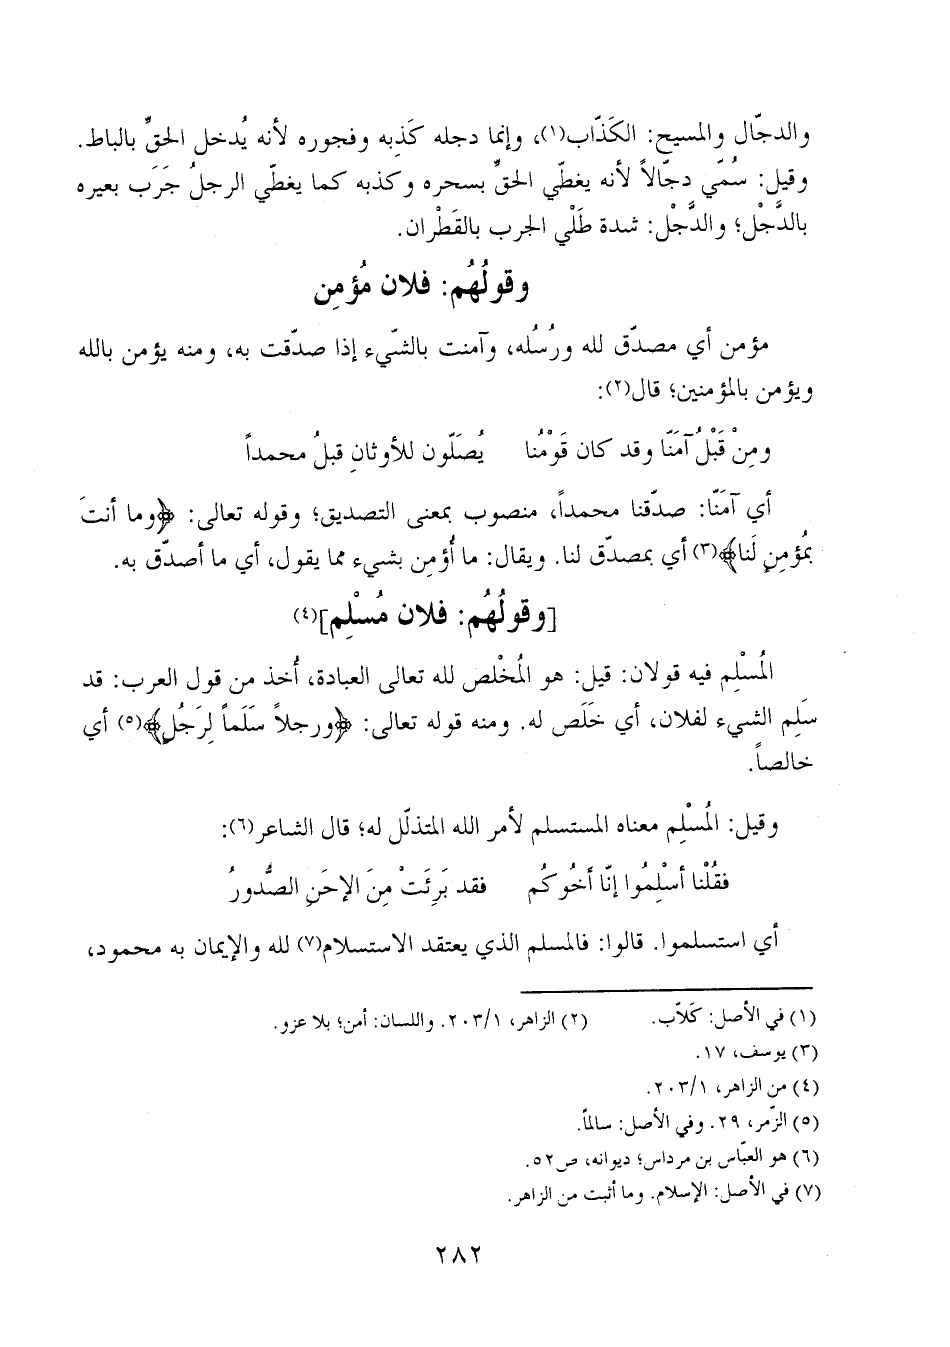 والدجّال والمسيح: الكَذّاب(١)، وإنما دجله كَذِبه وفجوره لأنه يُدخل الحقّ بالباط.
وقيل: سُمّي دجّالاً لأنه يغطّي الحقّ بسحره وكذبه كما يغطّي الرجلُ جَرَب بعيره
بالدَّجْل؛ والدَّجْل: شدة طَلْي الجرب بالقَطْران.
وقولُهُم: فلان مُؤمِن
مؤمن أي مصدّق لله ورُسُله، وآمنت بالشّيء إذا صدّقت به، ومنه يؤمن بالله
ويؤمن بالمؤمنين؛ قال(٢):
ومِنْ قَبْلُ آمَنّا وقد كان قَوْمُنا يُصَلّون للأوثانِ قبلُ محمداً
أي آمَنّا: صدّقنا محمداً، منصوب بمعنى التصديق؛ وقوله تعالى: ﴿وما أنتَ
بمُؤمِنٍ لَنا﴾(٣) أي بمصدّق لنا. ويقال: ما أُؤمِن بشيء مما يقول، أي ما أصدّق به.
[وقولُهُم: فلان مُسْلِم](٤)
المُسْلِم فيه قولان: قيل: هو المُخْلص لله تعالى العبادة، أُخذ من قول العرب: قد
سَلِم الشيء لفلان، أي خَلَص له. ومنه قوله تعالى: ﴿ورجلاً سَلَماً لِرَجُلٍ﴾(٥) أي
خالصاً.
وقيل: المُسْلِم معناه المستسلم لأمر الله المتذلّل له؛ قال الشاعر(٦):
فقُلْنا أسْلِمُوا إنّا أخُوكُم فقد بَرِئَتْ مِنَ الإحَنِ الصُّدورُ
أي استسلموا. قالوا: فالمسلم الذي يعتقد الاستسلام(٧) لله والإيمان به محمود،
(١) في الأصل: كَلاّب. (٢) الزاهر، ٢٠٣/١. واللسان: أمن؛ بلا عزو.
(٣) يوسف، ١٧.
(٤) من الزاهر، ٢٠٣/١.
(٥) الزّمر، ٢٩. وفي الأصل: سالماً.
(٦) هو العبّاس بن مرداس؛ ديوانه، ص٥٢.
(٧) في الأصل: الإسلام. وما أثبت من الزاهر.
٢٨٢